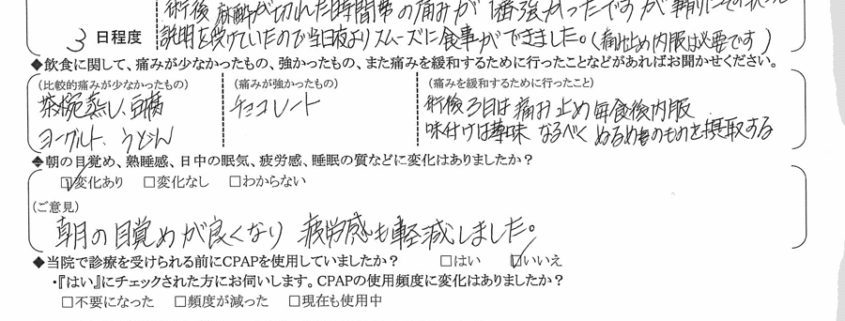 術後 麻酔が切れた時間帯の痛みが1番強かったですが 事前に
3 日程度
説明を受けていたので当日夜よりスムーズに食事ができました。(痛み止め内服は必要です)
◆飲食に関して、痛みが少なかったもの、強かったもの、また痛みを緩和するために行ったことなどがあればお聞かせください。
(比較的痛みが少なかったもの) (痛みが強かったもの) (痛みを緩和するために行ったこと)
茶碗蒸し、豆腐 チョコレート 術後3日は痛み止め毎食後内服
ヨーグルト、うどん 味付けは薄味 なるべく ぬるめのものを摂取する
◆朝の目覚め、熟睡感、日中の眠気、疲労感、睡眠の質などに変化はありましたか?
☑変化あり □変化なし □わからない
(ご意見)
朝の目覚めが良くなり 疲労感も軽減しました。
◆当院で診療を受けられる前にCPAPを使用していましたか? □はい ☑いいえ
・『はい』にチェックされた方にお伺いします。CPAPの使用頻度に変化はありましたか?
□不要になった □頻度が減った □現在も使用中